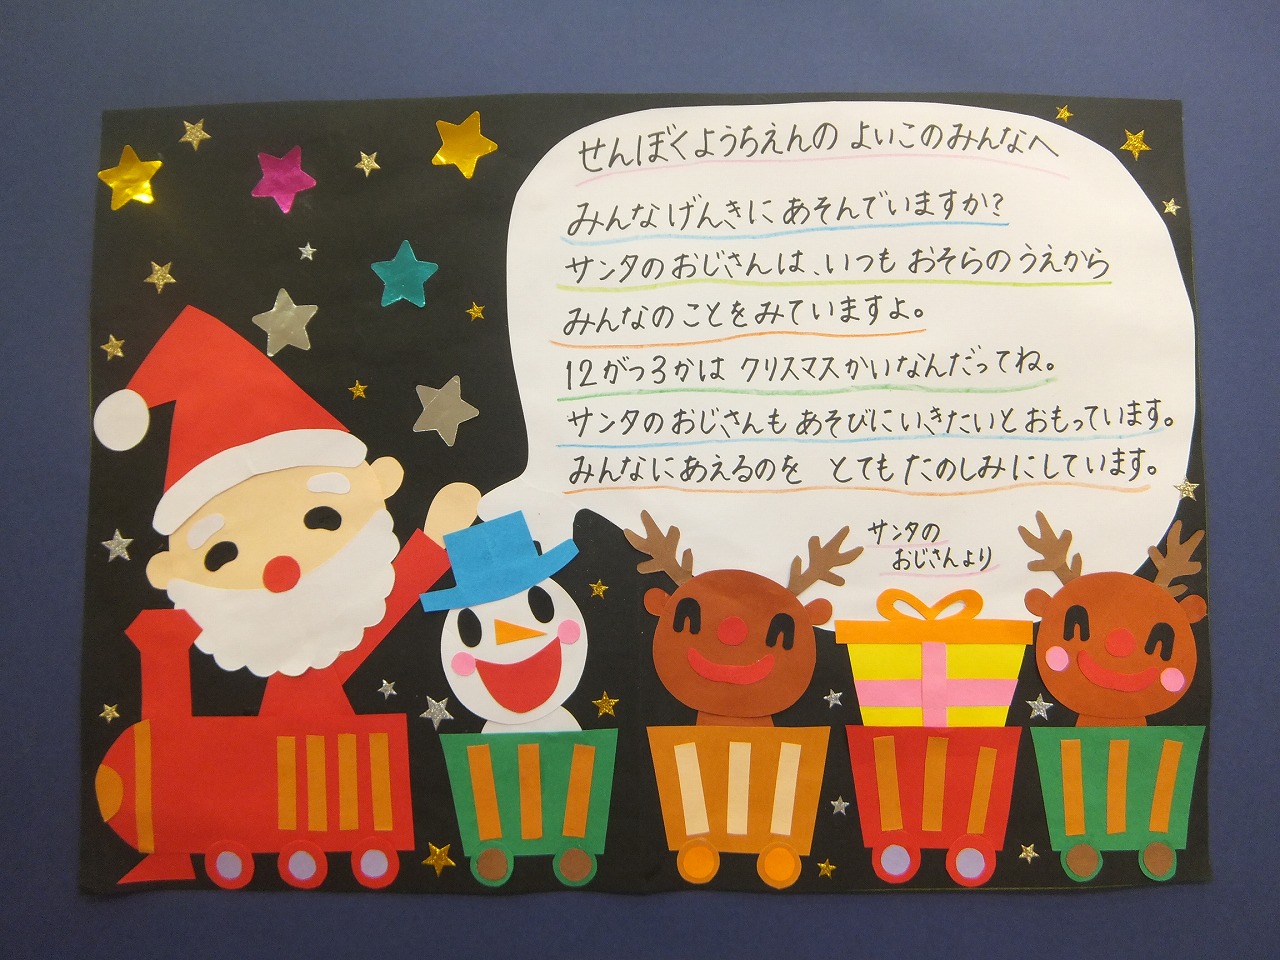 せんぼくようちえんの よいこのみんなへ
みんなげんきに あそんでいますか?
サンタのおじさんは、いつも おそらのうえから
みんなのことをみていますよ。
12がつ3かは クリスマスかいなんだってね。
サンタのおじさんも あそびにいきたいと おもっています。
みんなにあえるのを とてもたのしみにしています。
サンタの
おじさんより